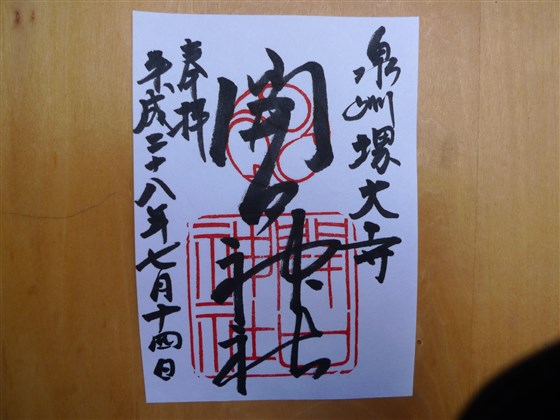 泉州堺大寺
開口神社
開口神社
奉拝
平成二十八年七月十四日